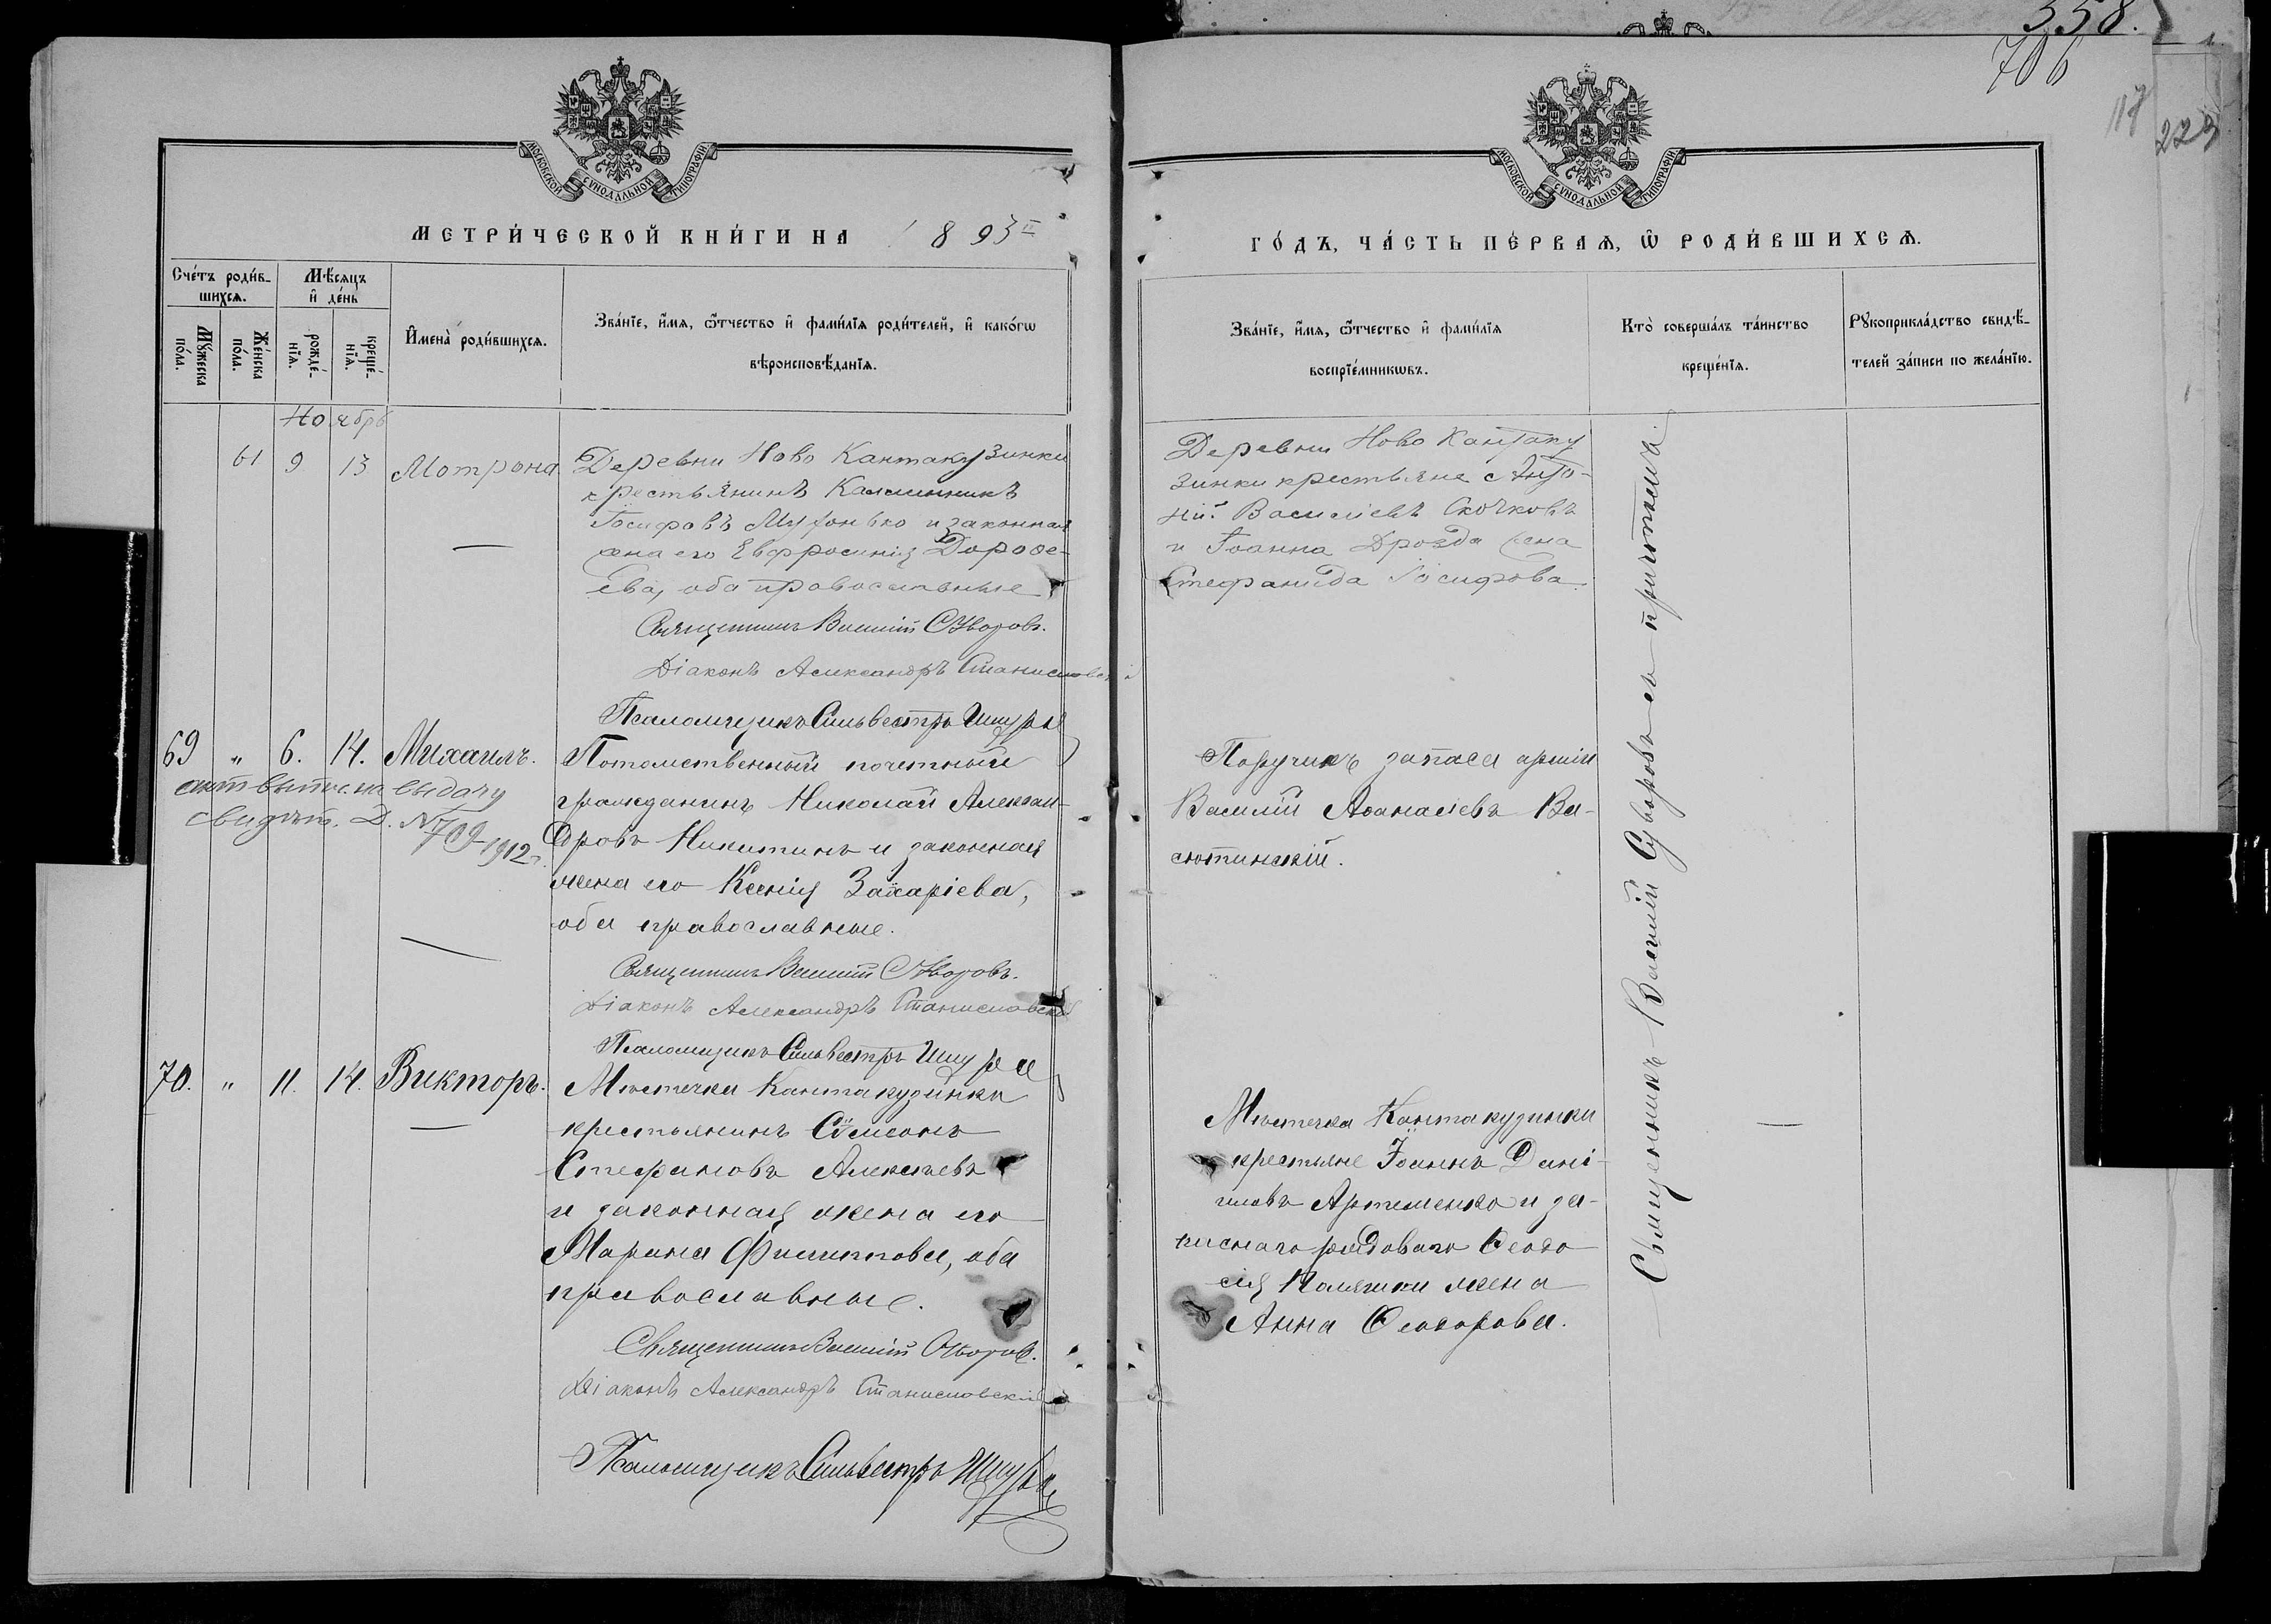 358.
706
117
223
МОСКОВСКОЙ СѴНОДАЛЬНОЙ ТИПОГРАФІИ
МОСКОВСКОЙ СѴНОДАЛЬНОЙ ТИПОГРАФІИ
МЕТРИ́ЧЕСКОЙ КНИ́ГИ НА 1893й
ГО́ДЪ, ЧА́СТЬ ПЕ́РВАѦ, Ѿ РОДИ́ВШИХСѦ.
Сче́тъ роди́в-
шихсѧ.
Мꙋ́жеска по́ла.
Же́нска по́ла.
Мѣ́сяцъ
и҆ де́нь
рожде́-
нїѧ.
креще́-
нїѧ.
И҆мена̀ роди́вшихсѧ.
Зва́нїе, и҆́мѧ, ѻ҆́тчество и҆ фами́лїѧ роди́телей, и҆ како́гѡ
вѣроисповѣ́данїѧ.
Зва́нїе, и҆́мѧ, ѻ҆́тчество и҆ фами́лїѧ
воспрїе́мникѡвъ.
Кто̀ соверша́лъ та́инство
креще́нїѧ.
Рꙋкоприкла́дство свидѣ́-
телей за́писи по жела́нїю.
Ноябрь
61 9 13 Мотрона
Деревни Ново Кантакузинки
крестьянинъ Каллинникъ
Іосифовъ и законная
жена его Евфросинія Дорофе-
ева, оба православные
Священникъ Василій Суворовъ.
Діаконъ Александръ Станиславскій
Псаломщикъ Сильвестръ
Деревни Ново Кантаку
зинки крестьяне Анто-
ній Василіевъ Скочковъ
и Іоанна Дрозда жена
Стефанида Іосифова.
69 " 6. 14. Михаилъ.
выдачу
свидѣт. Д. № 709-1912 г.
Потомственный почетный
гражданинъ Николай Алексан-
дровъ Никитинъ и законная
жена его Ксенія Захаріева,
оба православные.
Священникъ Василій Суворовъ.
Діаконъ Александръ Станиславскій
Псаломщикъ Сильвестръ
Поручикъ запаса арміи
Василій Аѳанасіевъ Ва-
сютинскій.
70. " 11. 14. Викторъ.
Мѣстечка Кантакузинки
крестьянинъ Сѵмеонъ
Стефановъ Алексѣевъ
и законная жена его
Марина Филиппова, оба
православные.
Священникъ Василій Суворовъ.
Діаконъ Александръ Станиславскій
Псаломщикъ Сильвестръ
Мѣстечка Кантакузинки
крестьяне Іоаннъ Дані-
иловъ Артеменко и за-
писнаго рядоваго Ѳеодо
сія жена
Анна Ѳеодорова.
Священникъ Василій Суворовъ съ причтомъ.